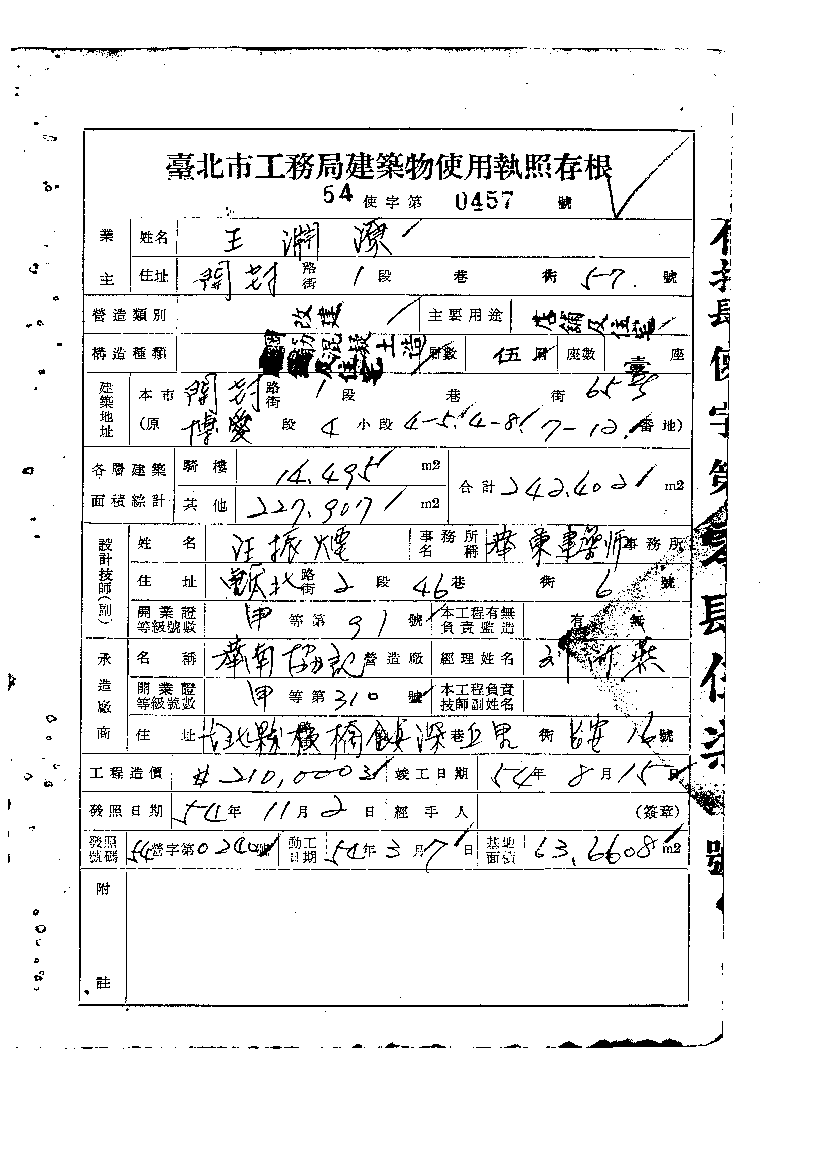 臺北市工務局建築物使用執照存根
54 使字第 0457 號
業主 姓名 王
住址 開封 路街 1 段 巷 街 57 號
營造類別 改建 主要用途 店鋪及住宅
構造種類 筋混凝土造及住宅 層數 伍層 座數 臺 座
建築地址 本市 開封 路街 1 段 巷 街 65號
(原 博愛 段 4 小段 4-5 4-8 7-12 番地)
各層建築面積綜計 騎樓 14.495 m2 合計 242.402 m2
其他 227.907 m2
設計技師(副) 姓名 汪振 事務所名稱 華東建築師 事務所
住址 北 路街 2 段 46 巷 街 6 號
開業證等級號數 甲 等第 91 號 本工程有無負責監造 有 無
承造廠商 名稱 華南協記 營造廠 經理姓名 燕
開業證等級號數 甲 等第 310 號 本工程負責技師副姓名
住址 台北縣 橋鎮深丘里 巷 街 16 號
工程造價 #210,000 竣工日期 54年 8月 15日
發照日期 54年 11月 2日 經手人 (簽章)
發照號碼 54營字第0240號 動工日期 54年 3月 7日 基地面積 63.6608 m2
附註